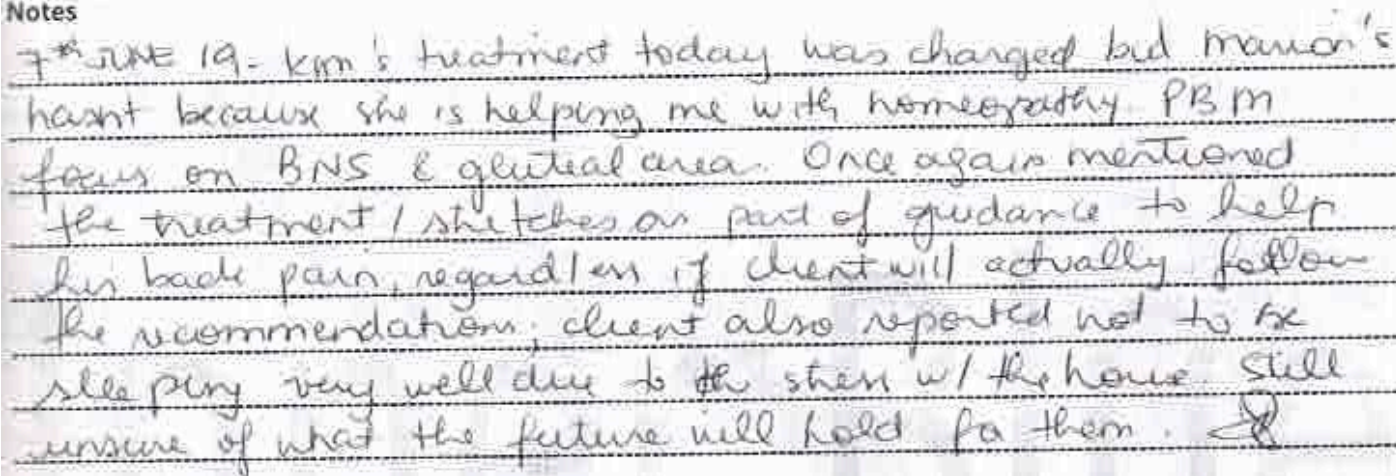 Notes
7th JUNE 19 - Kim's treatment today was changed but Marion's
hasnt because she is helping me with homeopathy. PBM
focus on BNS & gluteal area. Once again mentioned
the treatment / stretches as part of guidance to help
his back pain, regardless if client will actually follow
the recommendations; client also reported not to be
sleeping very well due to the stress w/ the house. Still
unsure of what the future will hold for them.